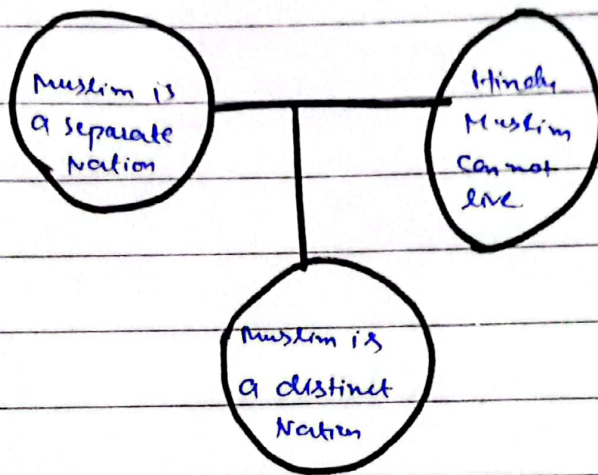 Muslim is
a separate
Nation
Hindu
Muslim
cannot
live
Muslim is
a distinct
Nation